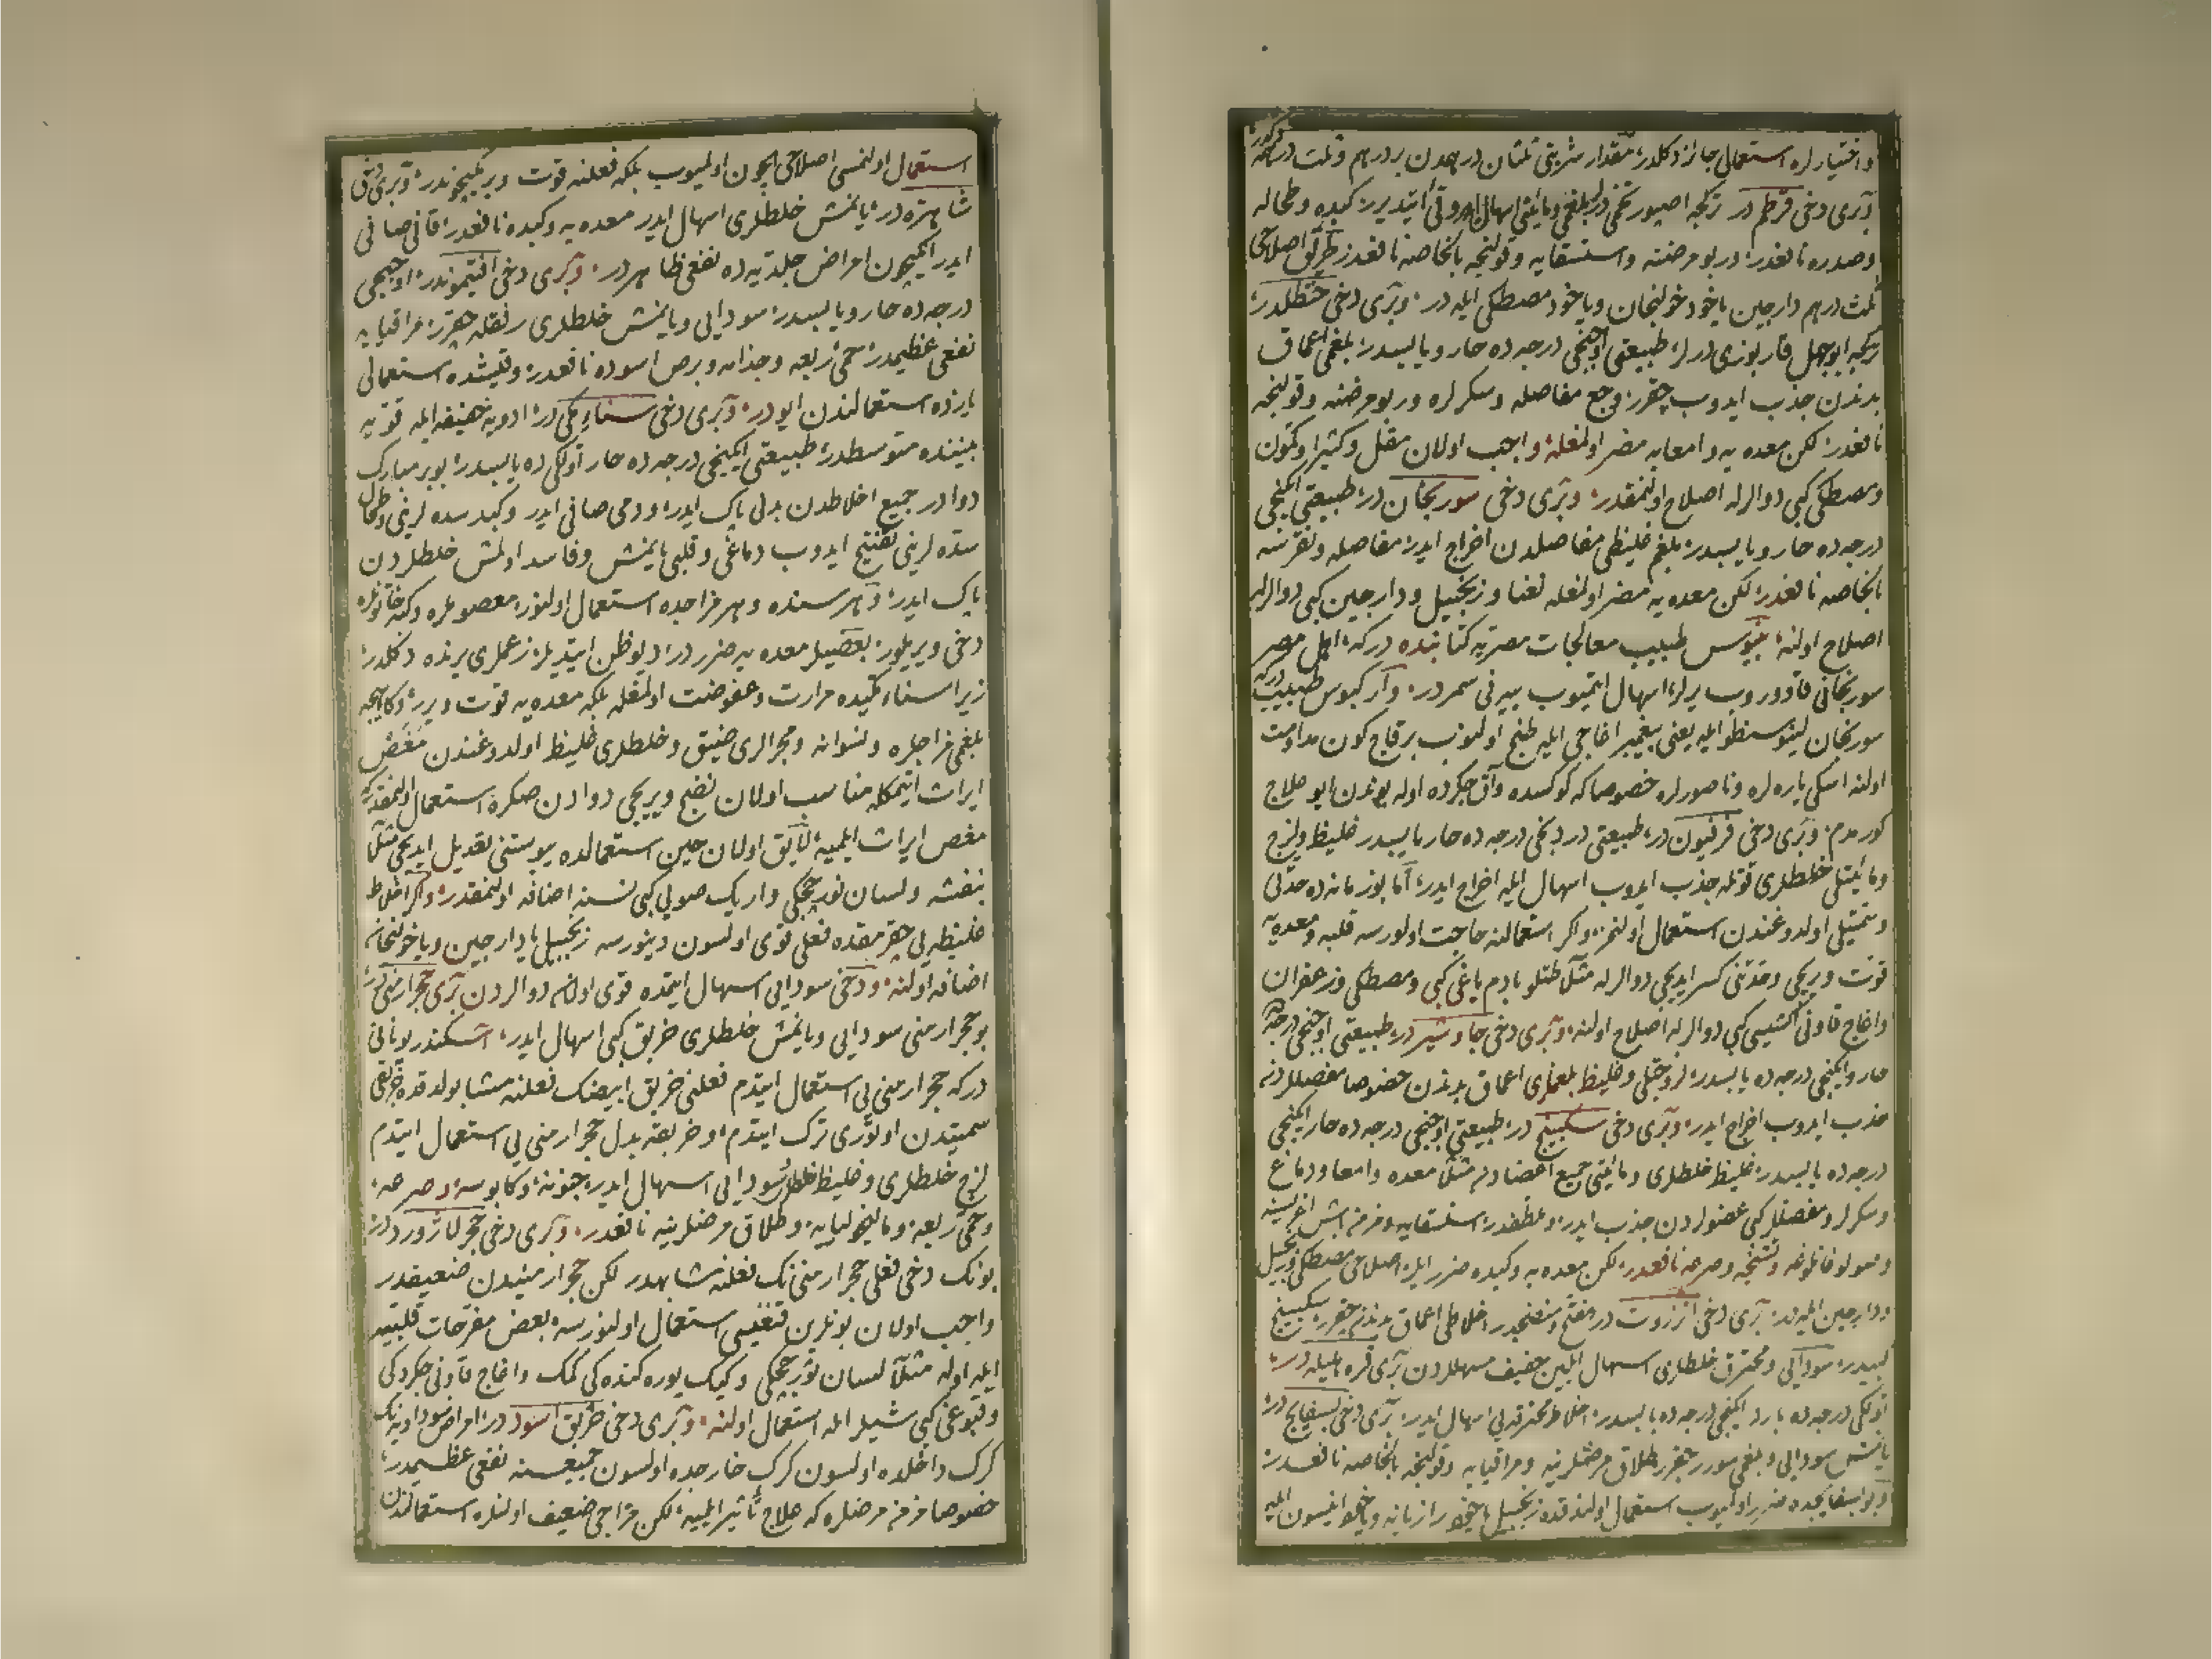 واختيارلره استعمالى جائز دكلدر مقدار شربتى ثلثان درهمدن بر درهم وثلث درهمه
وبرى دخى قرطم در تركجه اصپور تخمى بلغمى ومائيتى اسهال ايدر كبده وطحاله
وصدره نافعدر ربو مرضنه واستسقايه وقولنجه بالخاصه نافعدر طريق اصلاحى
ثلث درهم دارچين ياخود خولنجان وياخود مصطكى ايله در وبرى دخى حنظلدر
تركجه ابوجهل قارپوزى ديرلر طبيعتى اوچنجى درجه ده حار ويابسدر بلغمى اعماق
بدندن جذب ايدوب چقرر وجع مفاصله وسكرلره وربو مرضنه وقولنجه
نافعدر لكن معده يه وامعايه مضر اولمغله واجب اولان مقل وكثيرا وكتون
ومصطكى كبى دوالرله اصلاح اولنمقدر وبرى دخى سورنجان در طبيعتى ايكنجى
درجه ده حار ويابسدر بلغم غليظى مفاصلدن اخراج ايدر مفاصله ونقرسه
بالخاصه نافعدر لكن معده يه مضر اولمغله نعنا وزنجبيل ودارچين كبى دوالرله
اصلاح اولنه طبيب معالجات مصريه كتابنده ديركه اهل مصر
سورنجانى قاووروب يرلر اسهال ايتميوب بيرنى سمردر طبيب ديركه
سورنجان يعنى پيغمبر اغاجى ايله طبخ اولنوب برقاچ كون مداومت
اولنه اسكى ياره لره وناصورلره خصوصا كه كوكسده وآق جكرده اوله بوندن ايو علاج
كورمدم وبرى دخى فرفيون در طبيعتى دردنجى درجه ده حار يابسدر غليظ ولزج
ومائيتلى خلطلرى قوتله جذب ايدوب اسهال ايله اخراج ايدر اما بوزمانده حدتلى
وسميتلى اولدوغندن استعمال اولنمز واكر استعمالنه حاجت اولورسه قلبه ومعديه
قوت ويريجى وحدتنى كسر ايديجى دوالرله مثلا طتلو بادم ياغى كبى ومصطكى وزعفران
واغاج قاونى اكشيسى كبى دوالرله اصلاح اولنه وبرى دخى جاوشير در طبيعتى اوچنجى درجه ده
حار وايكنجى درجه ده يابسدر لزوجتلى وغليظ بلغملرى اعماق بدندن خصوصا مفصللردن
جذب ايدوب اخراج ايدر وبرى دخى سكبينج در طبيعتى اوچنجى درجه ده حار ايكنجى
درجه ده يابسدر غليظ خلطلرى ومائيتى جميع اعضادن مثلا معده وامعا ودماغ
وسكرلر ومفصللر كبى عضولردن جذب ايدر وملطفدر استسقايه ومزمن باش اغريسنه
ومفلوجه وتشنجه وصرعه نافعدر لكن معده يه وكبده ضرر ايلر اصلاحى مصطكى وزنجبيل
ودارچين ايله در برى دخى انزروت در مفتح ومنضجدر اخلاطى اعماق بدندن چقرر سكبينج
كبيدر سودايى ومحترق خلطلرى اسهال ايدن خفيف مسهللردن برى قره هليله در
اولكى درجه ده بارد ايكنجى درجه ده يابسدر اخلاط محترقه يى اسهال ايدر برى دخى بسفايج در
يانمش سودايى وبلغمى سورر چقرر طلاق مرضلرينه ومراقيايه وقولنجه بالخاصه نافعدر
وبو بسفايجده ضرر اولميوب استعمال اولندقده زنجبيل ياخود رازيانه وياخود انيسون ايله
استعمال اولنمسى اصلاحى ايچون اولميوب بلكه فعلنه قوت ويرمك ايچوندر وبرى دخى
شاهتره در يانمش خلطلرى اسهال ايدر معده يه وكبده نافعدر قانى صافى
ايدر انكيچون امراض جلديه ده نفعى ظاهر در وبرى دخى افتيموندر اوچنجى
درجه ده حار ويابسدر سودايى ويانمش خلطلرى رفقله چقرر مراقيايه
نفعى عظيمدر حمى ربعه وجذامه وبرص اسوده نافعدر وقيشده استعمالى
يازده استعمالندن ايودر وبرى دخى سناء مكى در ادويه خفيفه ايله قويه
بيننده متوسطدر طبيعتى ايكنجى درجه ده حار اولكى ده يابسدر بو بر مبارك
دوادر جميع اخلاطدن بدنى پاك ايدر ودمى صافى ايدر وكبد سده لرينى وطحال
سده لرينى تفتيح ايدوب دماغى وقلبى يانمش وفاسد اولمش خلطلردن
پاك ايدر وهر سنده وهر مزاجده استعمال اولنور معصوملره وكبه خاتونلره
دخى ويريلور بعضيلر معده يه ضرر در ديو ظن ايتديلر زعملرى يرنده دكلدر
زيرا سناء مكيده مرارت وعفوصت اولمغله بلكه معده يه قوت ويرر وكاهيجه
بلغمى مزاجلره ونسوانه ومجرالرى ضيق وخلطلرى غليظ اولدوغندن مغص
ايراث ايتمكله مناسب اولان نضج ويريجى دوادن صكره استعمال اولنمقدر كه
مغص ايراث ايلميه لايق اولان حين استعمالده يبوستنى تعديل ايديجى مثلا
بنفشه ولسان ثور چچكى واريك صويى كبى نسنه اضافه اولنمقدر واكر اخلاط
غليظه يى چقرمقده فعلى قوى اولسون دينورسه زنجبيل يا دارچين وياخولنجان
اضافه اولنه ودخى سودايى اسهال ايتمده قوى اولان دوالردن برى حجر ارمنى در
بو حجر ارمنى سودايى ويانمش خلطلرى خربق كبى اسهال ايدر اسكندر يونانى
ديركه حجر ارمنى يى استعمال ايتدم فعلنى خربق ابيضك فعلنه مشابه بولدقده خربقى
سميتدن اوتورى ترك ايتدم او خربقه بدل حجر ارمنى يى استعمال ايتدم
لزج خلطلرى وغليظ خلطلرى سودايى اسهال ايدر جنونه وكابوسه وصرعه
وحمى ربعه وماليخوليايه وطلاق مرضلرينه نافعدر وبرى دخى حجر لاژورد در
بونك دخى فعلى حجر ارمنى نك فعلنه مشابهدر لكن حجر ارمنيدن ضعيفدر
واجب اولان بونلرن قنغيسى استعمال اولنورسه بعض مفرحات قلبيه
ايله اوله مثلا لسان ثور چچكى وكيك يوره كنده كى كمك واغاج قاونى چكردكى
وقبوغى كبى شيلر ايله استعمال اولنه وبرى دخى خربق اسود در امراض سوداويه نك
كرك داخلده اولسون كرك خارجده اولسون جميعسنه نفعى عظيمدر
خصوصا مزمن مرضلره كه علاج تأثير ايلميه لكن مزاجى ضعيف اولنلره استعمالندن